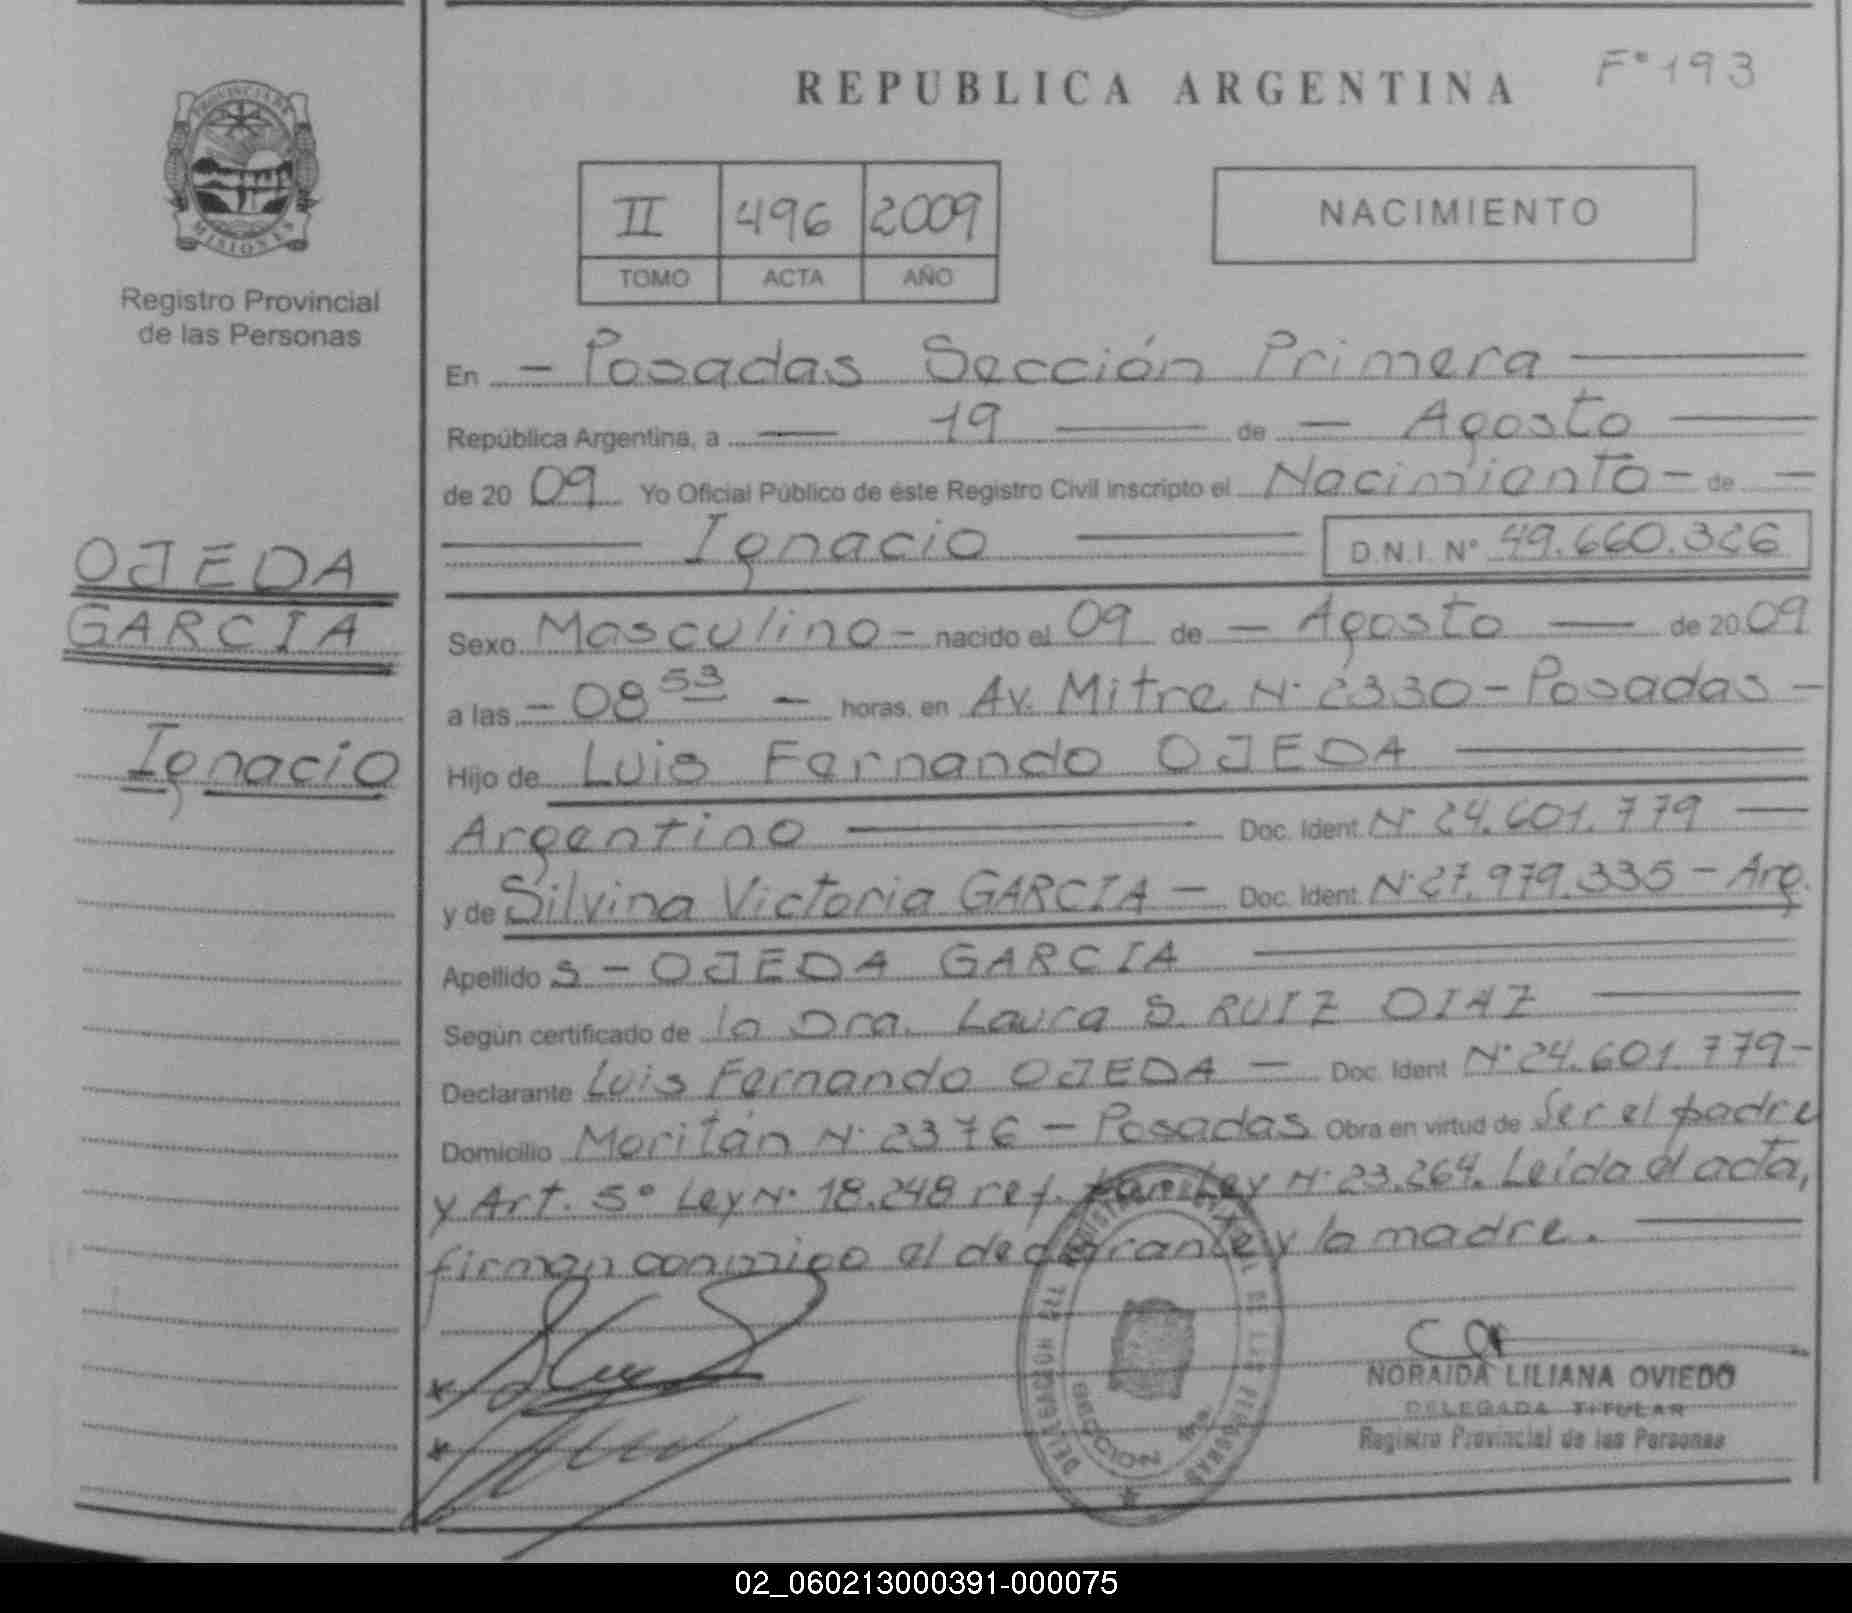 REPUBLICA ARGENTINA
F° 193
PROVINCIA DE
MISIONES
Registro Provincial
de las Personas
II 496 2009
TOMO ACTA AÑO
NACIMIENTO
OJEDA
GARCIA
Ignacio
En - Posadas Sección Primera
República Argentina, a 19 de - Agosto
de 20 09 Yo Oficial Público de éste Registro Civil inscripto el Nacimiento - de -
Ignacio D.N.I. N° 49.660.326
Sexo Masculino - nacido el 09 de - Agosto - de 20 09
a las - 08 53 - horas, en Av. Mitre N° 2330 - Posadas -
Hijo de Luis Fernando OJEDA
Argentino Doc. Ident. N° 24.601.779
y de Silvina Victoria GARCIA - Doc. Ident. N° 27.979.335 - Arg.
Apellido s - OJEDA GARCIA
Según certificado de la Dra. Laura S. RUIZ DIAZ
Declarante Luis Fernando OJEDA - Doc. Ident N° 24.601.779 -
Domicilio Moritán N° 2376 - Posadas Obra en virtud de Ser el padre
y Art. 5° Ley N° 18.248 ref. Ley N° 23.264. Leida el acta,
firman conmigo el declarante y la madre.
NORAIDA LILIANA OVIEDO
DELEGADA TITULAR
Registro Provincial de las Personas
SECCION 1ra.
02_060213000391-000075